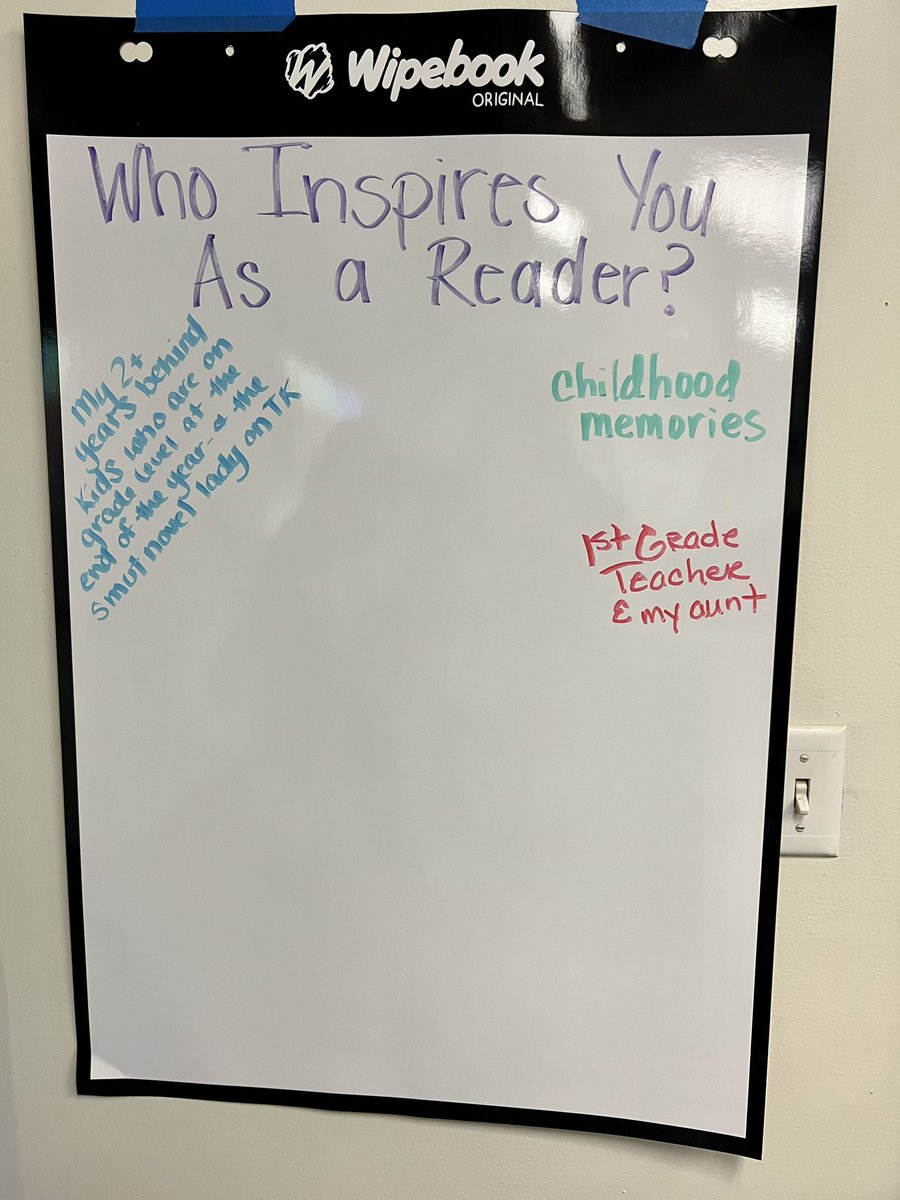 Wipebook
ORIGINAL
Who Inspires You
As a Reader?
My 2+
years behind
kids who are on
grade level at the
end of the year & the
smut novel lady on TK
childhood
memories
1st Grade
Teacher
& my aunt